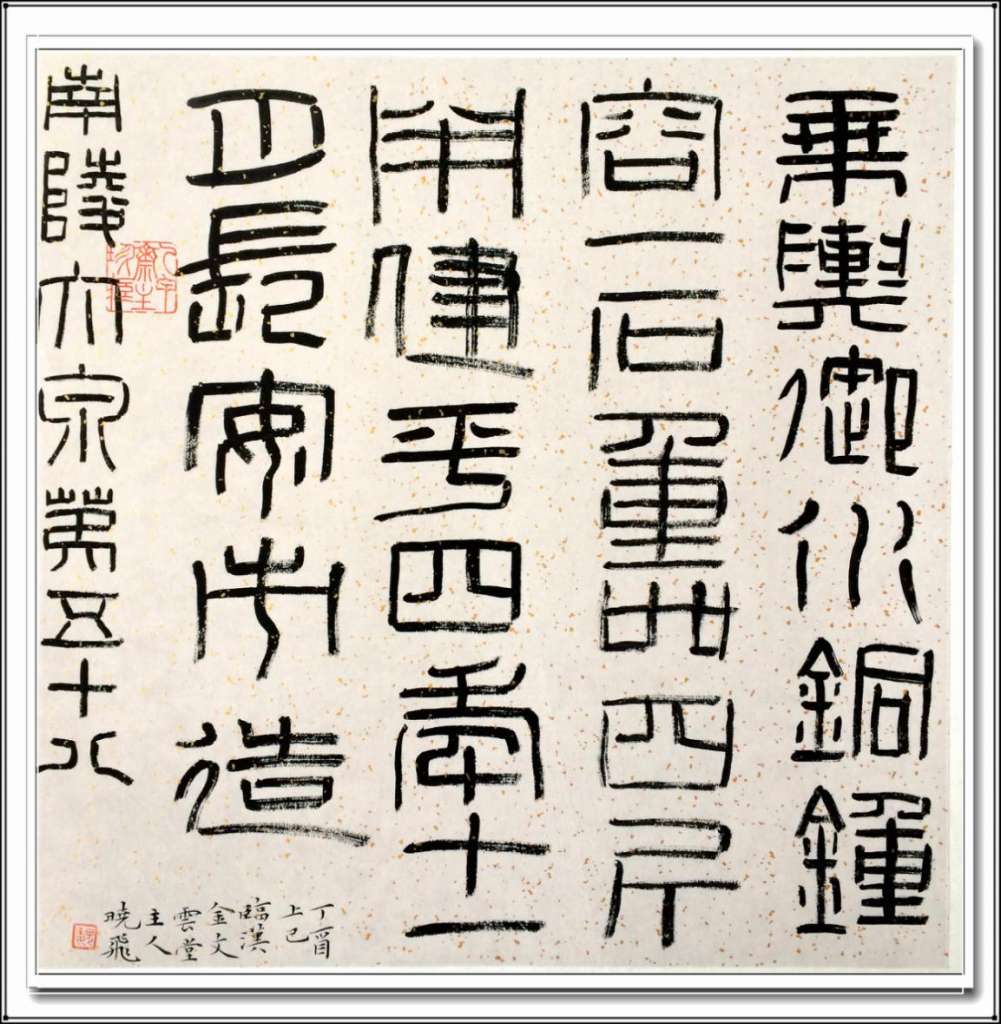 乘輿御水銅鍾
容一石重卅四斤
半建平四年十一
月長安市造
南陵大泉第五十八
丁酉
上巳
臨漢
金文
雲堂
主人
曉飛